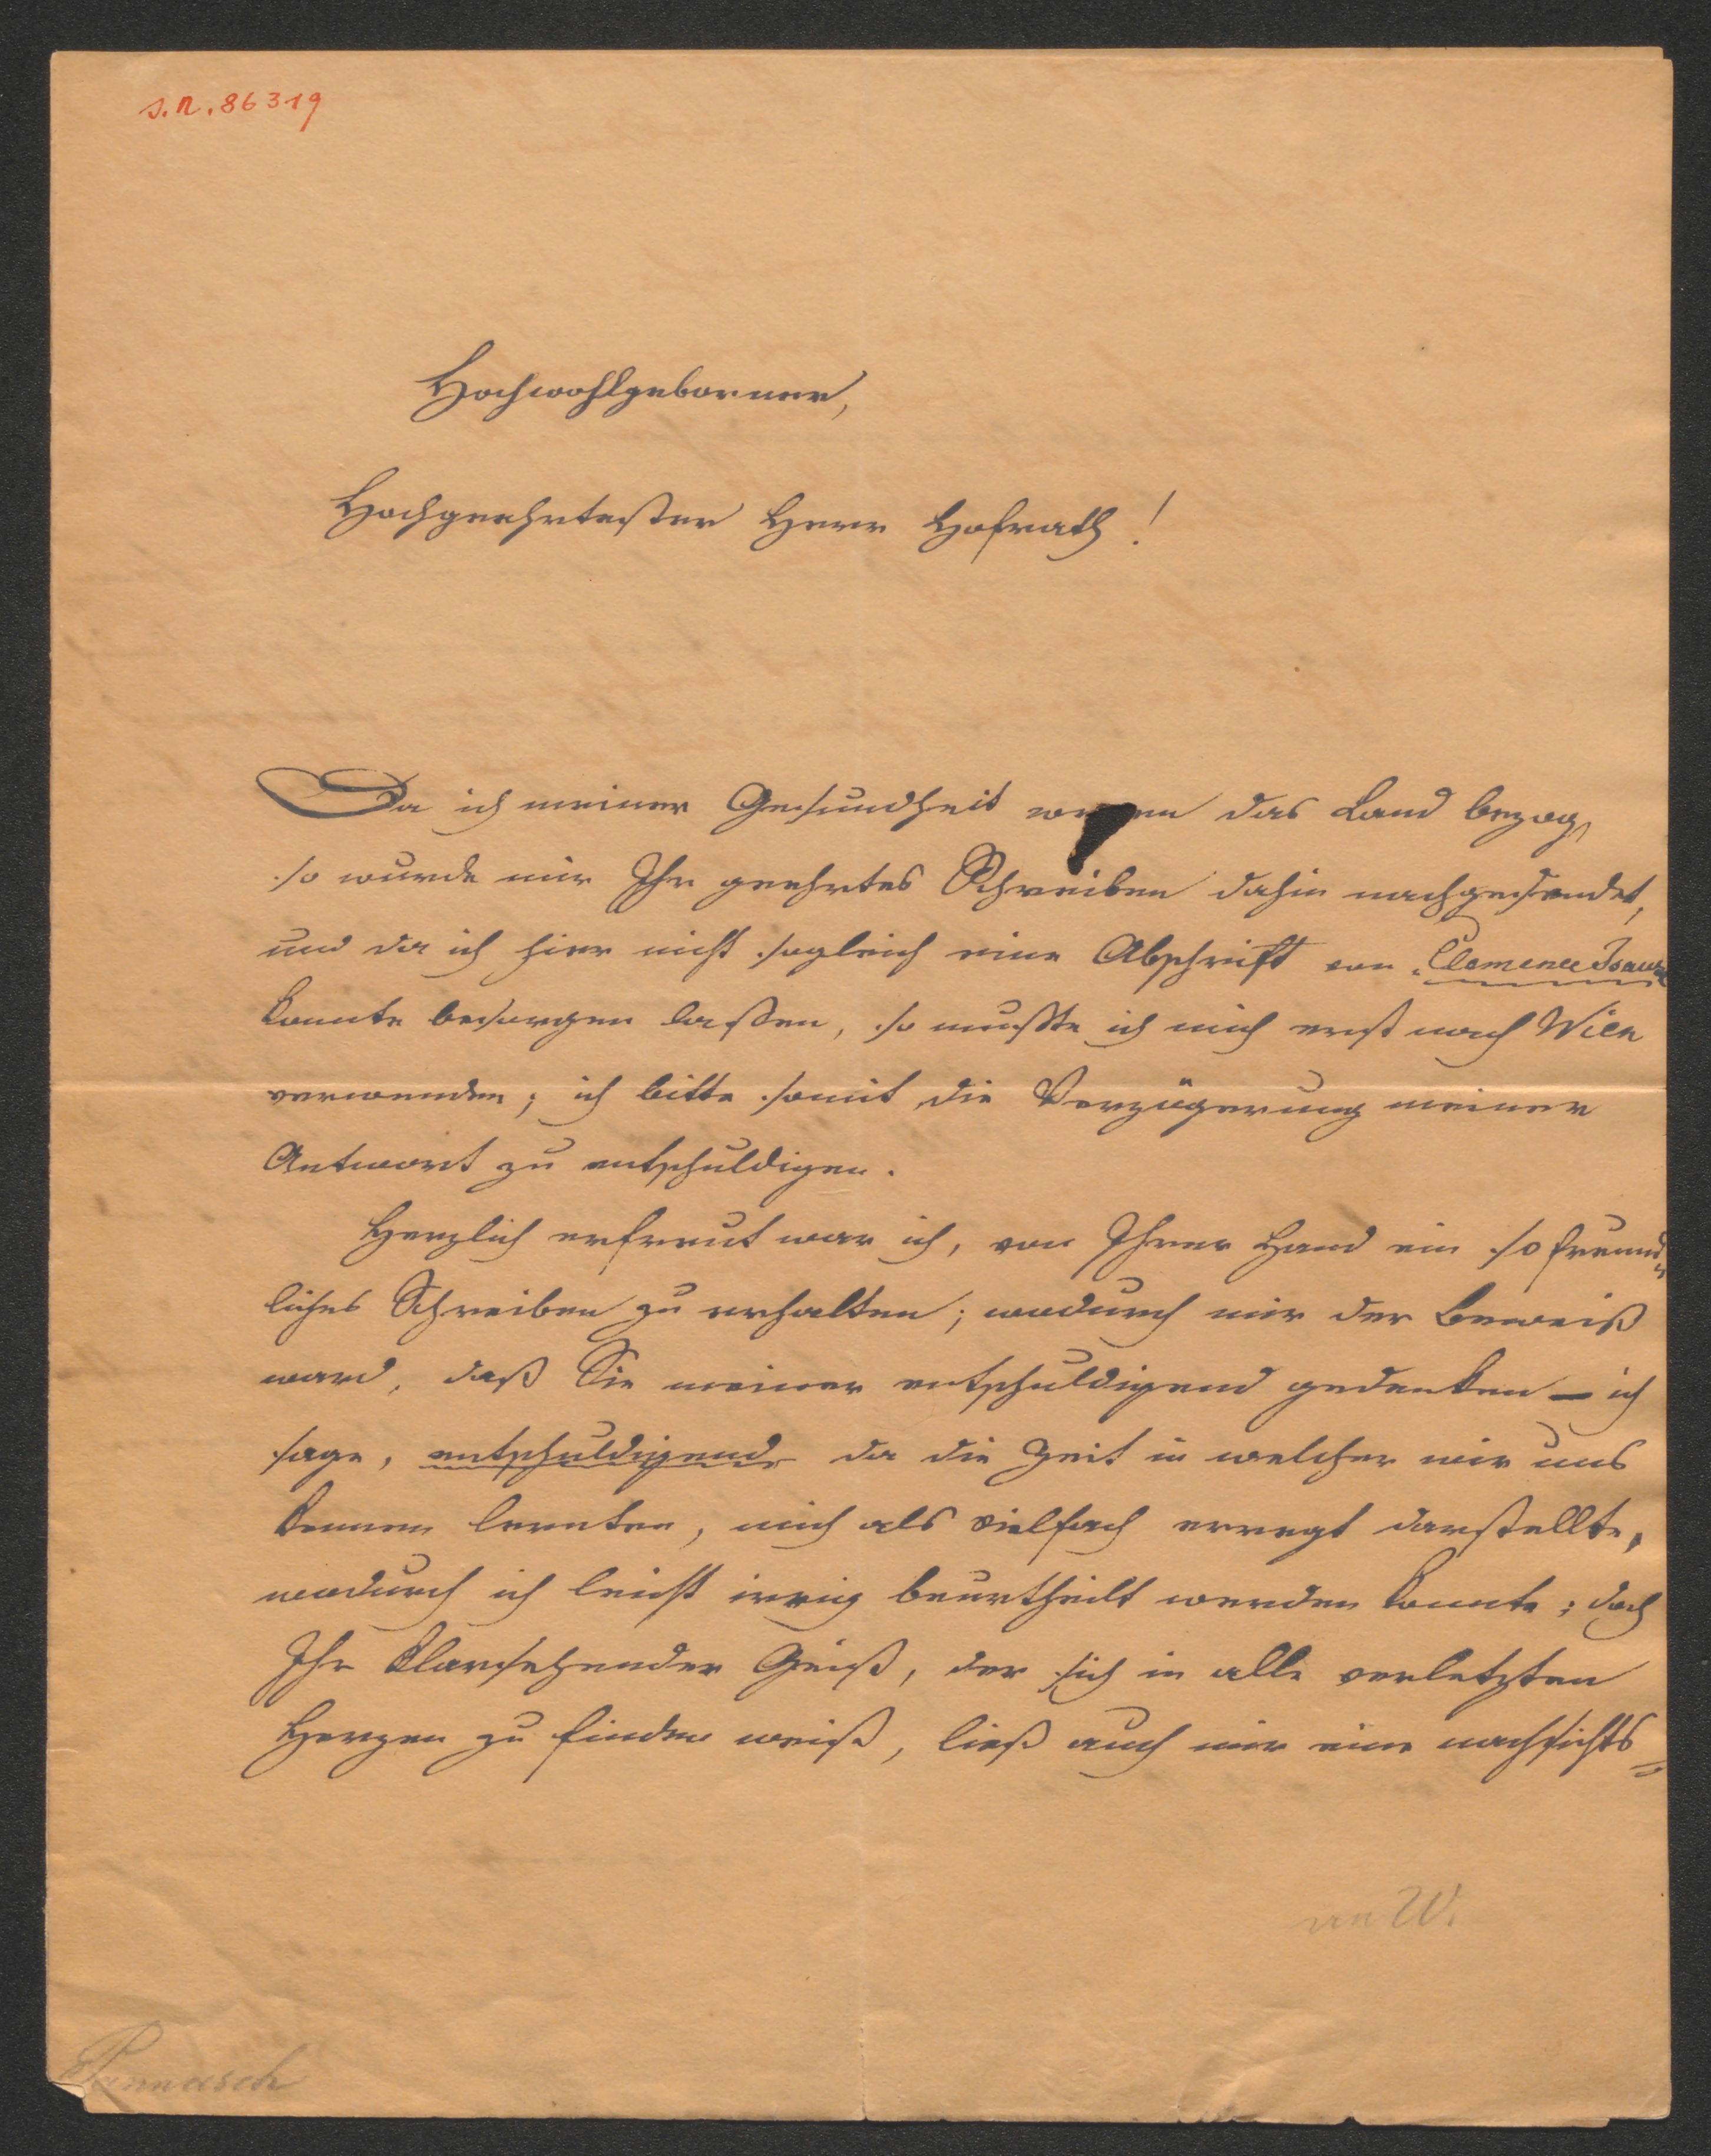 J.N. 86319
Hochwohlgeborner,
Hochgeehrtester Herr Hofrath!
Da ich meiner Gesundheit wegen das Land bezog,
so wurde mir Ihr geehrtes Schreiben dahin nachgesendet,
und da ich hier nicht sogleich eine Abschrift von "Clemence Isaure
konnte besorgen lassen, so mußte ich mich erst nach Wien
verwenden; ich bitte somit die Verzögerung meiner
Antwort zu entschuldigen.
Herzlich erfreut war ich, von Ihrer Hand ein so freund„
liches Schreiben zu erhalten; wodurch mir der Beweiß
ward, daß Sie meiner entschuldigend gedenken – ich
sage, entschuldigend da die Zeit in welcher wir uns
kennen lernten, mich als vielfach erregt darstellte,
wodurch ich leicht irrig beurtheilt werden konnte; doch
Ihr klarsehender Geist, der sich in alle verletzten
Herzen zu finden weiß, ließ auch mir eine nachsichts=
an W.
Pannasch